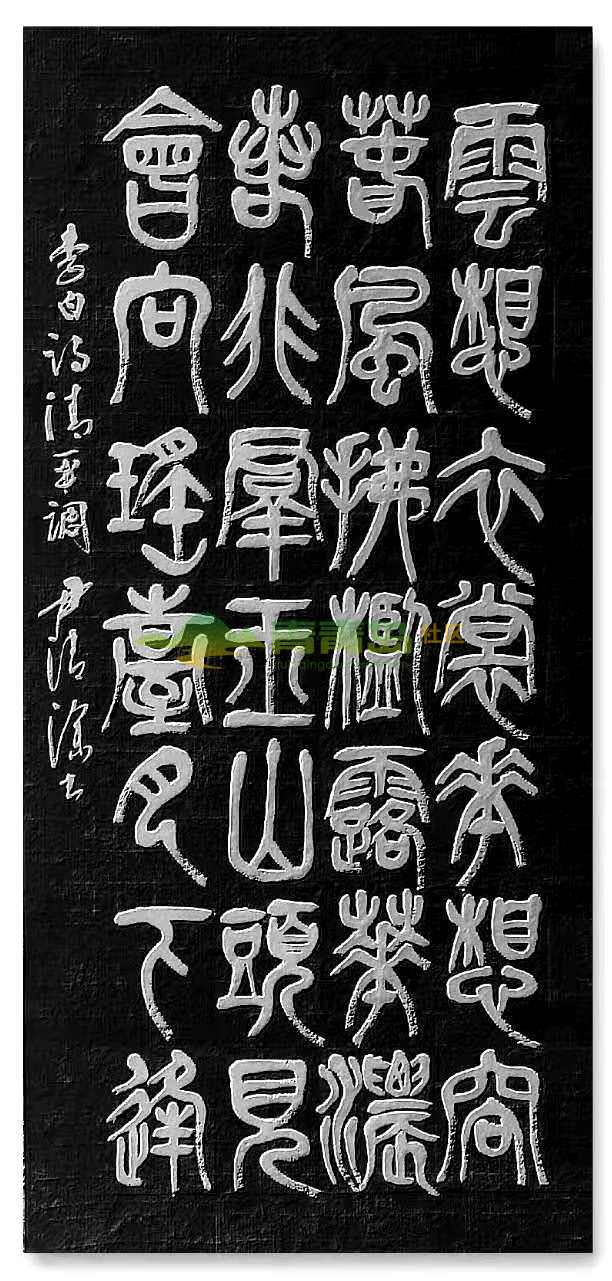 雲想衣裳花想容
春風拂檻露華濃
若非羣玉山頭見
會向瑤臺月下逢
李白诗清平調
青青岛社区